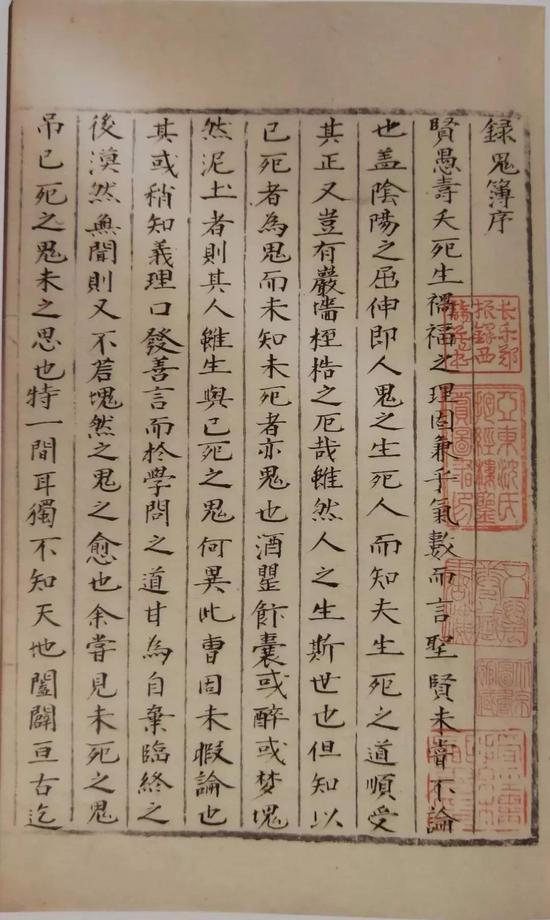 録鬼簿序
賢愚壽夭死生禍福之理固兼乎氣數而言聖賢未嘗不論
也盖陰陽之屈伸即人鬼之生死人而知夫生死之道順受
其正又豈有巖墻桎梏之厄哉雖然人之生斯世也但知以
已死者為鬼而未知未死者亦鬼也酒甖飰囊或醉或梦塊
然泥土者則其人雖生與已死之鬼何異此曹固未暇論也
其或稍知義理口發善言而於學問之道甘為自棄臨終之
後漠然無聞則又不若塊然之鬼之愈也余嘗見未死之鬼
吊已死之鬼未之思也特一間耳獨不知天地闔闢亘古迄
长乐郑
振鐸西
諦藏书
亞東沈氏
抱經樓鑒
賞圖書印